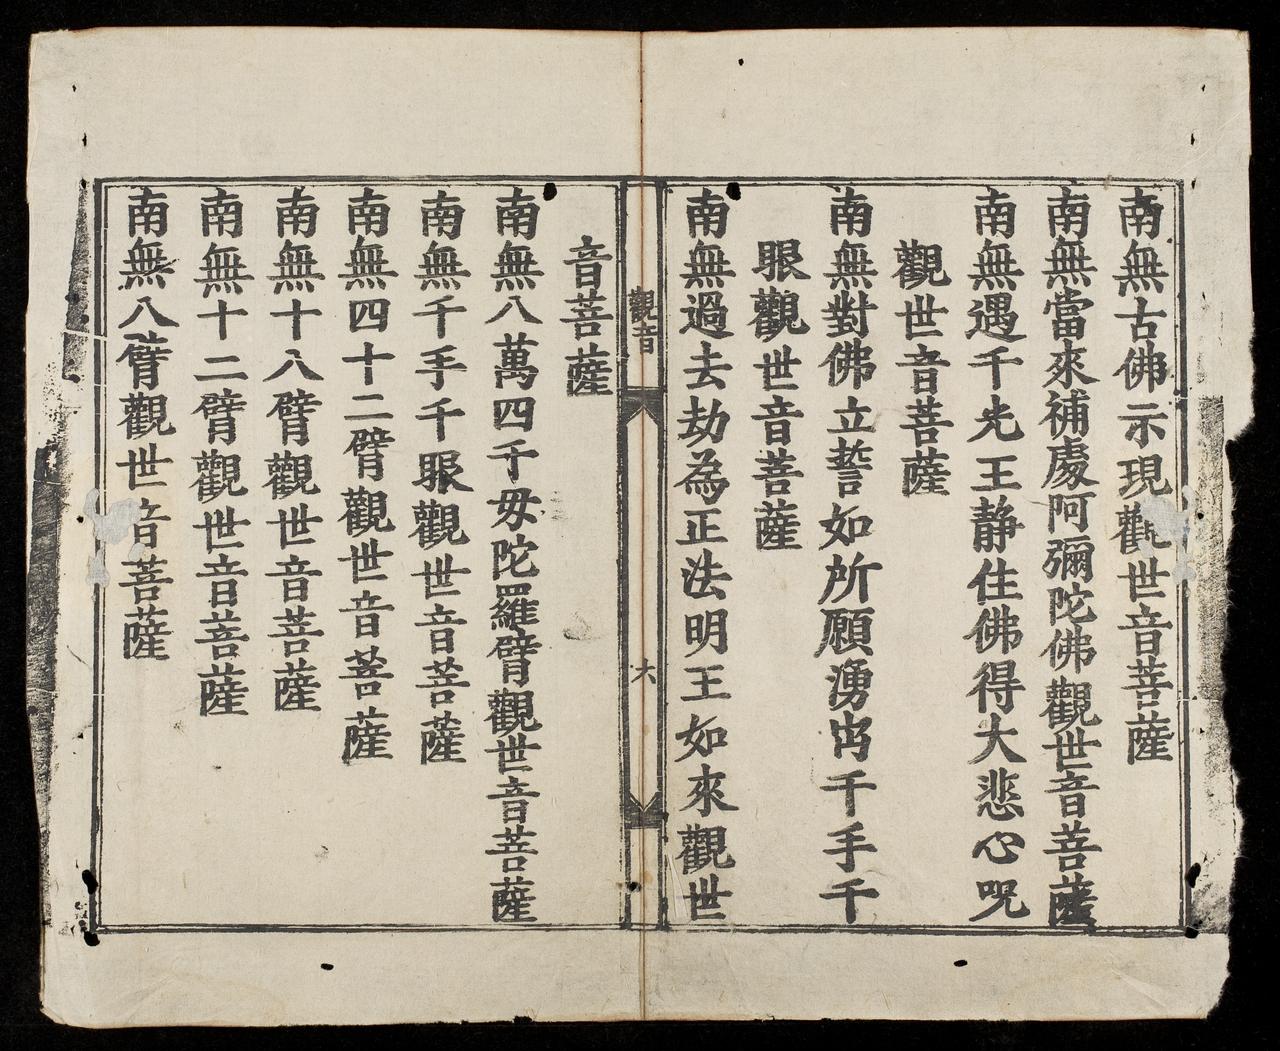 南無古佛示現觀世音菩薩
南無當來補處阿彌陀佛觀世音菩薩
南無遇千光王静住佛得大悲心呪
觀世音菩薩
南無對佛立誓如所願湧出千手千
眼觀世音菩薩
南無過去劫為正法明王如來觀世
觀音
六
音菩薩
南無八萬四千毋陀羅臂觀世音菩薩
南無千手千眼觀世音菩薩
南無四十二臂觀世音菩薩
南無十八臂觀世音菩薩
南無十二臂觀世音菩薩
南無八臂觀世音菩薩